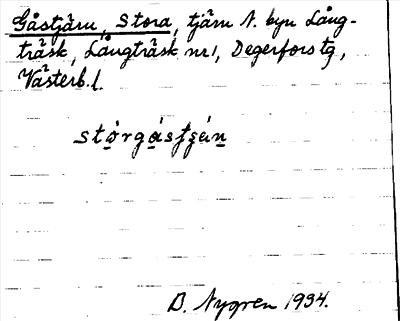 Gåstjärn, Stora, tjärn N. byn Lång-
träsk, Långträsk nr 1, Degerfors tg,
Västerb. l.
stǫ́rgásʈʂä́n
D. Nygren 1934.